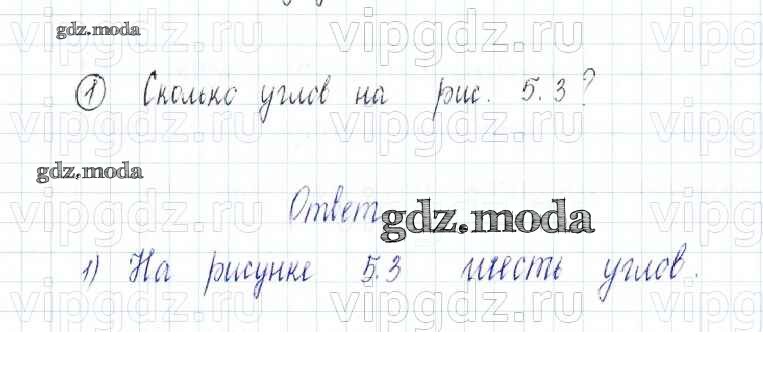 gdz.moda
vipgdz.ru vipgdz.ru vipgdz
① Сколько углов на рис. 5.3?
vipgdz.ru vipgdz.ru vipgdz
gdz.moda
Ответ
vipgdz.ru gdz.moda
1) На рисунке 5.3 шесть углов.
vipgdz.ru vipgdz.ru vipgdz